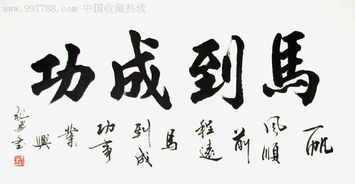 www.997788.com 中国收藏热线
馬到成功
一帆風順前程遠馬到成功事業興